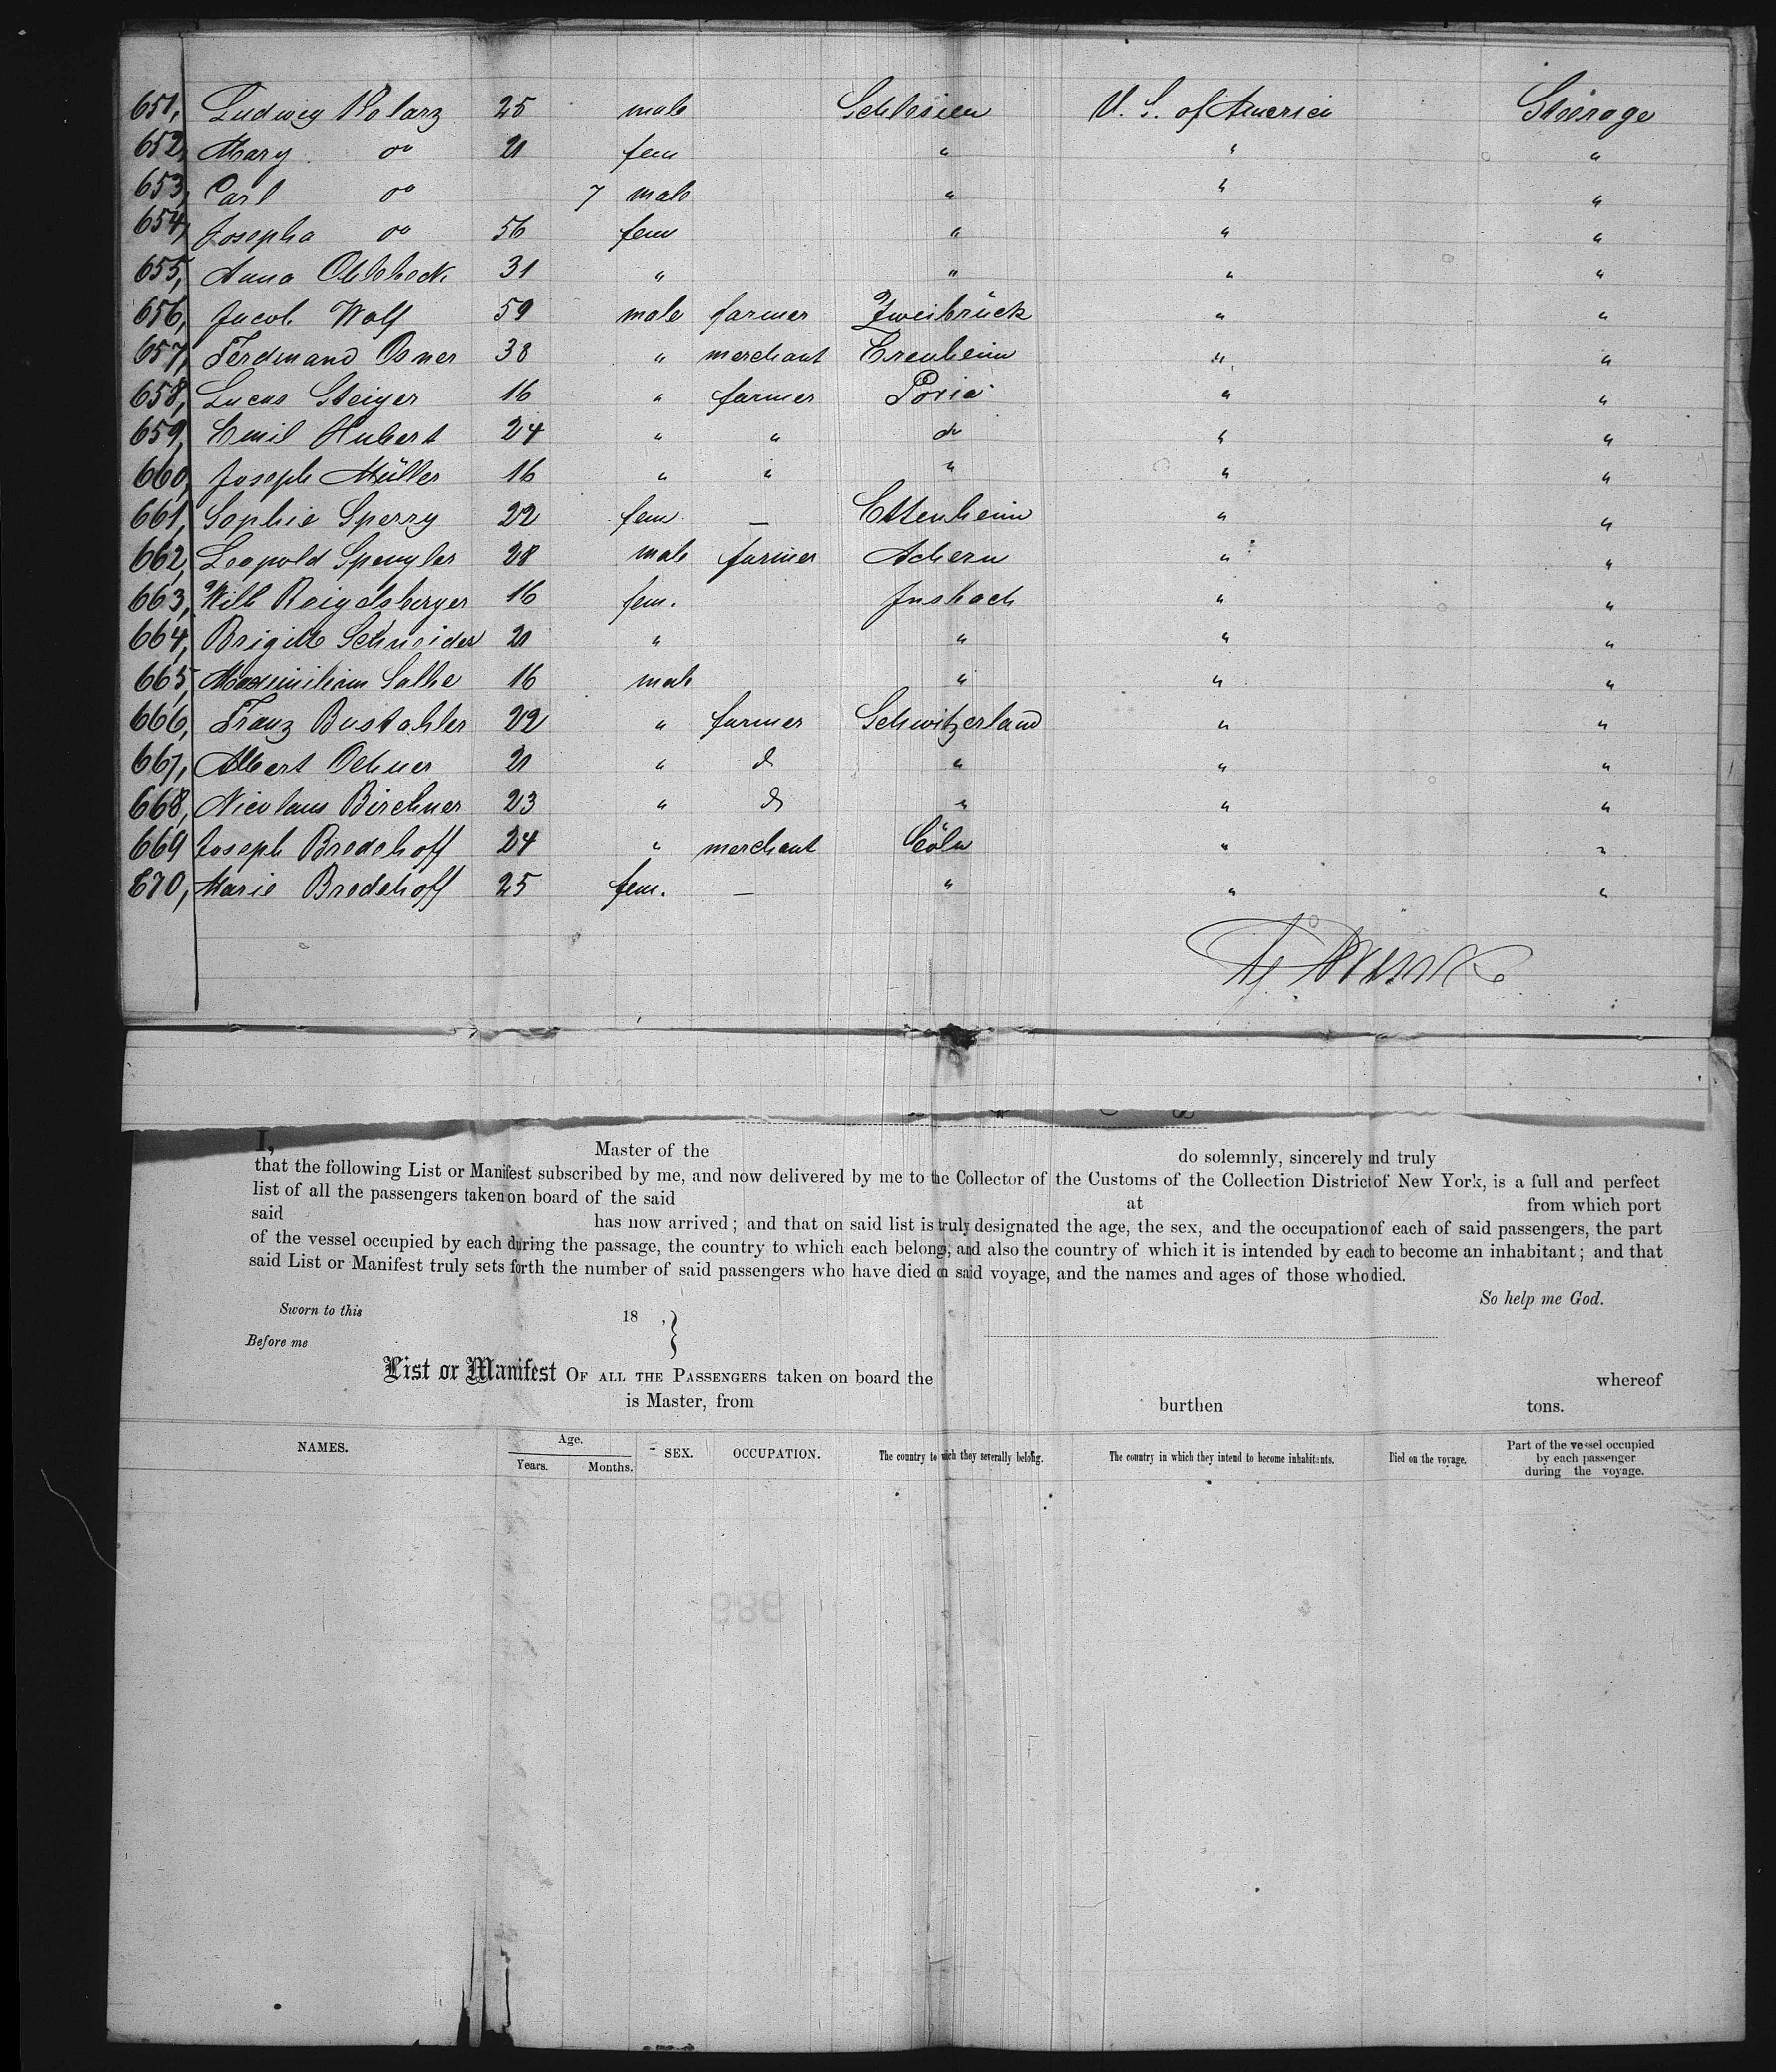 651, Ludwig Kolarz 25 male Schlesien U. S. of America Steerage
652, Mary do 21 fem " " "
653, Carl do 7 male " " "
654, Josepha do 56 fem " " "
655, Anna 31 " " " "
656, Jacob Wolf 59 male farmer Zweibrück " "
657, Ferdinand Osner 38 " merchant " "
658, Lucas Steiger 16 " farmer " "
659, Emil Hubert 24 " " do " "
660, Joseph Müller 16 " " " " "
661, Sophie Sperry 22 fem — Ettenheim " "
662, Leopold Spengler 28 male farmer Achern " "
663, Wilh Reigelsberger 16 fem. " "
664, Brigitte Schneider 21 " " " "
665, Maximilian Salbe 16 male " " "
666, Franz Bustahler 22 " farmer Schwitzerland " "
667, Albert Ochner 21 " do " " "
668, Nicolaus Birchner 23 " do " " "
669 Joseph Bredehoff 24 " merchant Cöln " "
670, Marie Bredehoff 25 fem. — " " "
I, Master of the do solemnly, sincerely and truly
that the following List or Manifest subscribed by me, and now delivered by me to the Collector of the Customs of the Collection District of New York, is a full and perfect
list of all the passengers taken on board of the said at from which port
said has now arrived; and that on said list is truly designated the age, the sex, and the occupation of each of said passengers, the part
of the vessel occupied by each during the passage, the country to which each belongs, and also the country of which it is intended by each to become an inhabitant; and that
said List or Manifest truly sets forth the number of said passengers who have died on said voyage, and the names and ages of those who died.
So help me God.
Sworn to this 18 ,
Before me
List or Manifest OF ALL THE PASSENGERS taken on board the whereof
is Master, from burthen tons.
NAMES. Age. Years. Months. SEX. OCCUPATION. The country to which they severally belong. The country in which they intend to become inhabitants. Died on the voyage. Part of the vessel occupied by each passenger during the voyage.